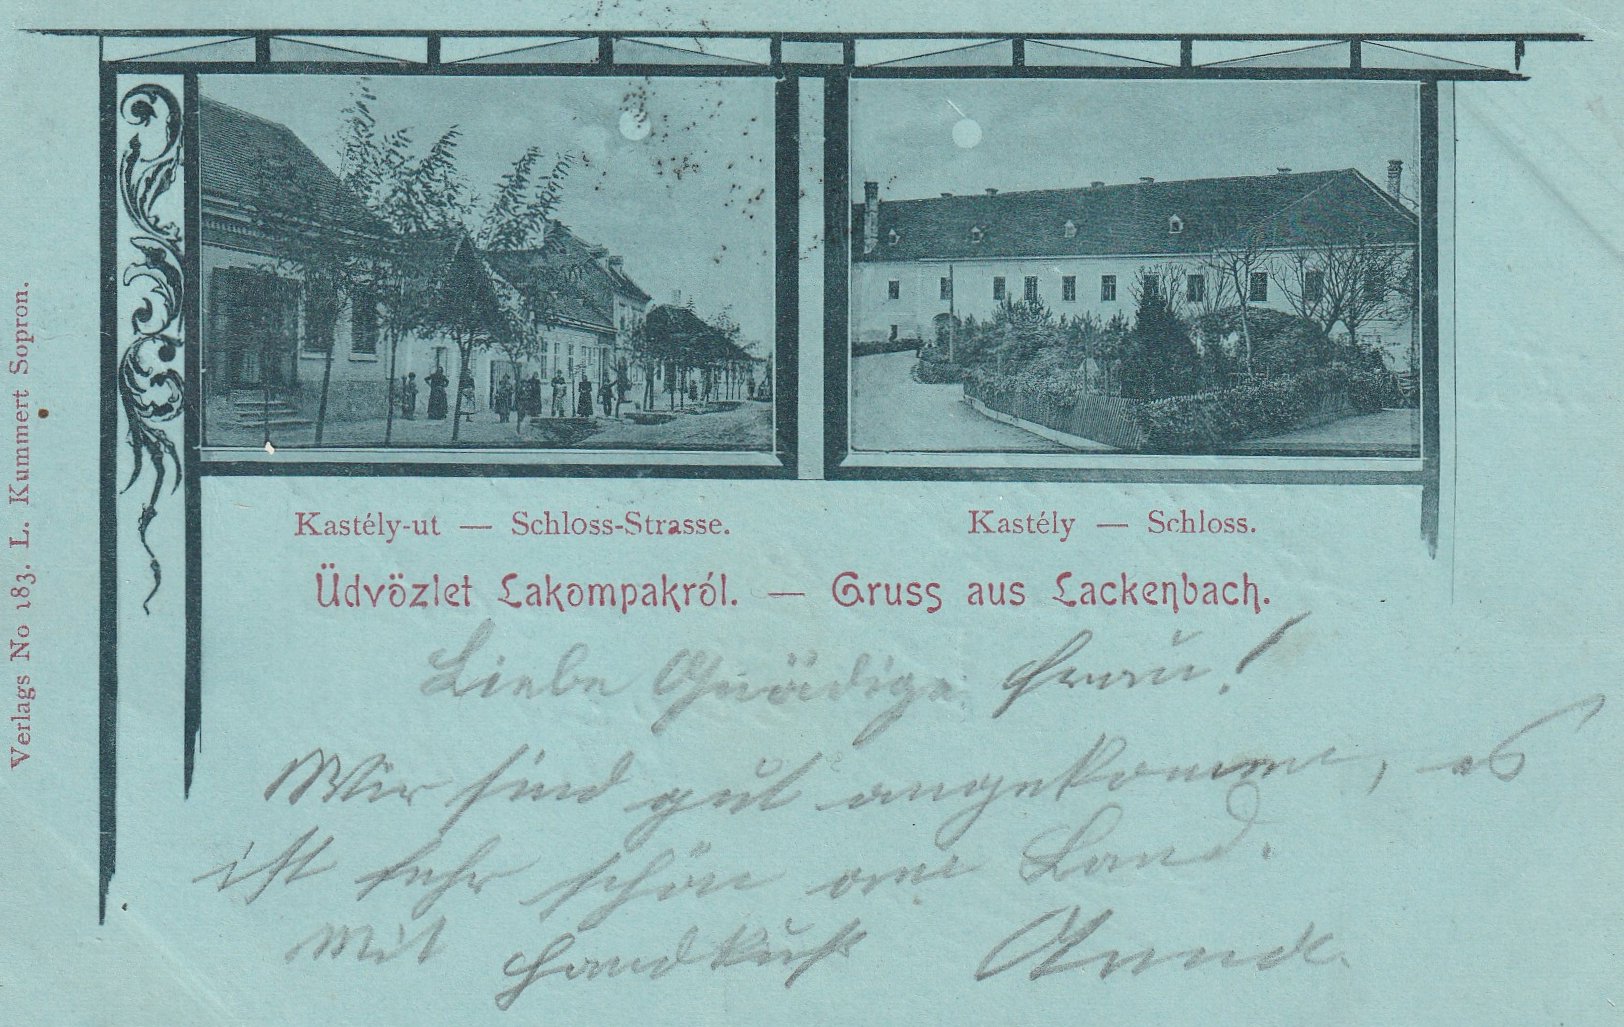 Kastély-ut — Schloss-Strasse.
Kastély — Schloss.
Üdvözlet Lakompakról. — Gruss aus Lackenbach.
Liebe Gnädige Frau!
Wir sind gut angekommen, es
ist sehr schön am Land.
Mit Handkuß
Verlags No 183. L. Kummert Sopron.